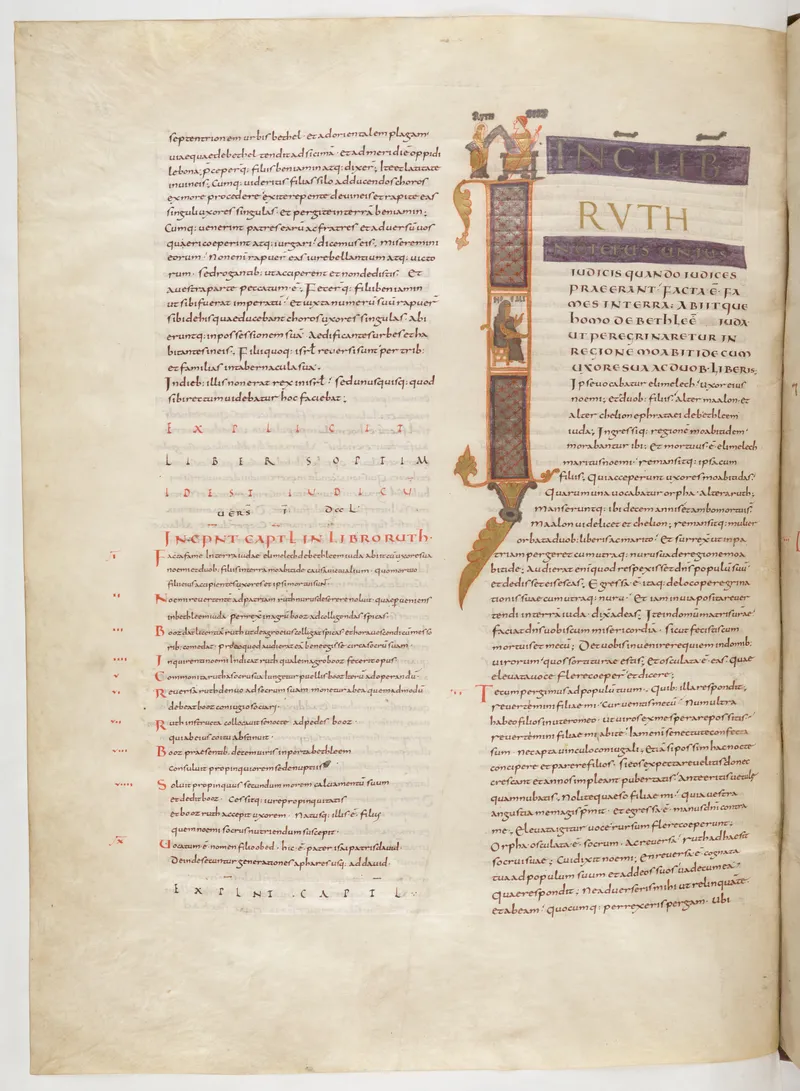 septentrionem urbis bethel · et ad orientalem plagam
uiae quae de bethel tendit ad sicimā · et ad meridiē oppidi
lebona; p̄ceperq: filiis beniamin atq: dixer̄; Ite et latitate
in uineis, Cumq: uideritis filias silo ad ducendos choros
ex more procedere exite repente de uineis et rapite eas
singuli uxores singulas · et pergite in terrā beniamin;
Cumq: uenerint patres earū ac fratres et aduersū uos
quaeri coeperint atq: iurgari' dicemus eis, miseremini
eorum · Non enī rapuer̄ eas iure bellantium atq: uicto
rum · sed rogantib: ut acciperent et non dedistis · Et
a uestra parte peccatum ē, Fecerq: filii beniamin
ut sibi fuerat imperatū · et iuxta numerū suū rapuer̄
sibi de his quae ducebant choros uxores singulas · Abi
eruntq: in possessionem suā · Aedificantes urbes et ha
bitantes in eis, Filii quoq: isrl̄ reuersi sunt per trib:
et familias in tabernacula sua ·
In dieb: illis non erat rex in isrl̄ · sed unusquisq: quod
sibi rectum uidebatur hoc faciebat;
EXPLICIT
LIBER SOPTIM
ID EST IUDICU
UERS̄ Ī DCCL
INCPNT CAPTL IN LIBRO RUTH ·
Facta fame In terra iudae elimelech de bethleem iuda abiit cū uxore sua
noemi et duob: filiis in terra moabitide
filii eius accipientes uxores et ipsi mortui sunt ·
Noemi reuertente ad patriam ruth nurus deserere noluit · quae peruenient
in bethleem iuda perrexit in agrū booz ad colligendas spicas ·
Booz dat licentiā ruth ut de agro eius colligat spicas et hora uescendi
Inquirente noemi Indicat ruth qualem agro booz fecerit opus
Commonita ruth a socru sua Iungetur puellis booz
Reuersa ruth denuo ad socrum suam · monetur ab ea quemadmodū
debeat booz coniugio sociari ·
Ruth instructa collocauit se nocte ad pedes booz
qui ab eius coitu abstinuit ·
Booz praesentib: decem uiris in porta bethleem
consuluit propinquorem
Soluit propinquus secundum morem calciamentū suum
et dedit booz · Cessitq: iure propinquitatis
et booz ruth accepit uxorem · Natusq: illis ē filius
quem noemi socrus nutriendum suscepit ·
Uocatum ē nomen filio obed · hic ē pater isai patris dauid ·
Deinde secuntur generationes a phares usq: ad dauid ·
EXPLNT CAPTL
INCIT LIB
RVTH
IN DIEBUS UNIUS
IUDICIS QUANDO IUDICES
PRAEERANT · FACTA Ē · FA
MES IN TERRA: ABIITQUE
homo DE BETHLEĒ IUDA
UT PEREGRINARETUR IN
REGIONE MOABITIDE CUM
UXORE SUA AC DUOB: LIBERIS;
Ipse uocabatur elimelech' uxor eius
noemi; et duob: filiis' alter maalon · et
alter chelion ephrataei de bethleem
iuda; Ingressiq: regionē moabitidem'
morabantur ibi: et mortuus ē elimelech
maritus noemi' remansitq: ipsa cum
filiis, Qui acceperunt uxores moabitidas'
Quarum una uocabatur orpha · altera ruth;
Manseruntq: ibi decem annis et ambo mortui s̄'
Maalon uidelicet et chelion; remansitq: mulier
orbata duob: liberis ac marito' Et surrexit ut in pa
triam pergeret cum utraq: nuru sua de regione moa
bitide; Audierat enī quod respexisset dn̄s populū suū'
et dedisset eis escas, Egressa ē · itaq: de loco peregrina
tionis suae cum utraq: nuru · Et iam in uia posita reuer
tendi in terrā iuda · dix̄ ad eas; Ite in domū matris urae'
faciat dn̄s uobiscum misericordiā · sicut fecistis cum
mortuis et mecū; Det uobis inuenire requiem in domib:
uirorum' quos sortiturae estis; et osculata ē eas · Quae
eleuata uoce flere coeper̄ et dicere;
Tecum pergimus ad populū tuum · Quib: illa respondit,
reuertemini filiae mi · Cur uenitis mecū? Num ultra
habeo filios in utero meo · ut uiros ex me sperare possitis?
reuertemini filiae mi abite' Iam enī senectute confecta
sum · nec apta uinculo coniugali; Etiā si possim hac nocte
concipere et parere filios · si eos expectare uelitis donec
crescant et annos impleant pubertatis' Ante eritis uetulę
quam nubatis, Nolite quaeso filiae mi' quia uestra
angustia me magis p̄mit · et egressa ē manus dn̄i contra
me, Eleuata igitur uoce rursum flere coeperunt,
Orpha osculata ē socrum · Ac reuersa · ruth adhaesit
socrui suae; Cui dixit noemi; En reuersa ē cognata
tua ad populum suum et ad deos suos uade cum ea ·
Quae respondit; Ne aduerseris mihi ut relinquā te ·
et abeam' Quocumq: perrexeris pergam · Ubi